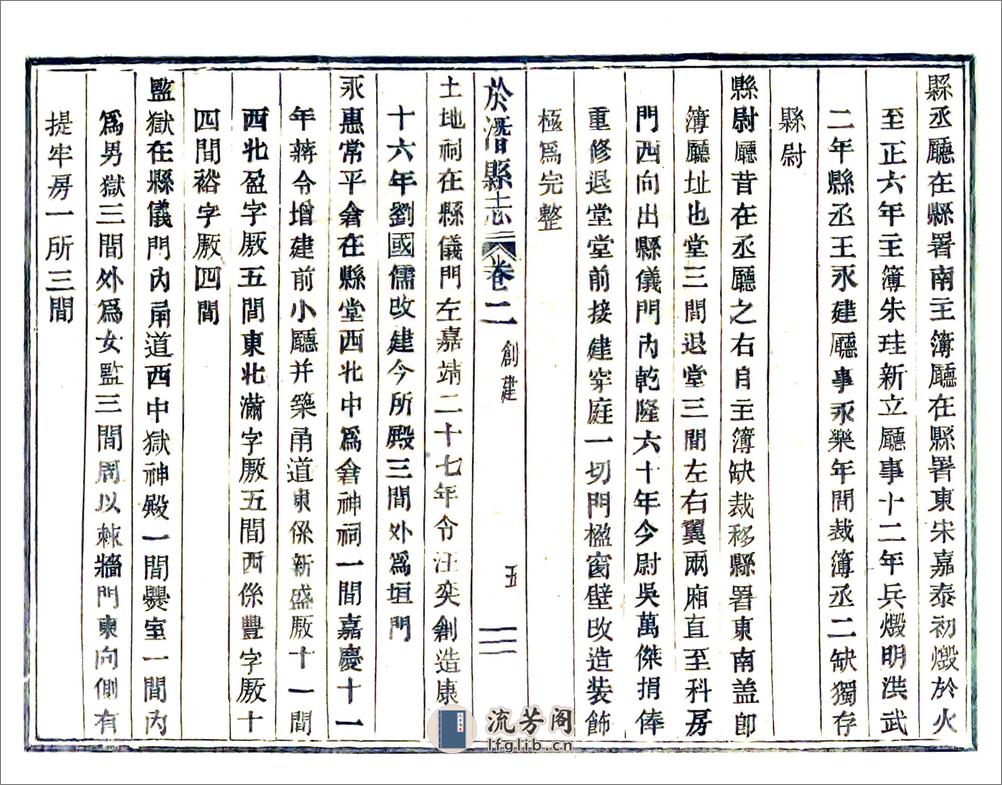 縣丞廳在縣署南主簿廳在縣署東宋嘉泰初燬於火
至正六年主簿朱珪新立廳事十二年兵燬明洪武
二年縣丞王永建廳事永樂年間裁簿丞二缺獨存
縣尉
縣尉廳昔在丞廳之右自主簿缺裁移縣署東南盖卽
簿廳址也堂三間退堂三間左右翼兩廂直至科房
門西向出縣儀門內乾隆六十年今尉吳萬傑捐俸
重修退堂堂前接建穿庭一切門楹窗壁改造装飾
極爲完整
於潛縣志 卷二 創建 五
土地祠在縣儀門左嘉靖二十七年令汪奕創造康
十六年劉國儒改建今所殿三間外爲垣門
永惠常平倉在縣堂西北中爲倉神祠一間嘉慶十一
年蔣令增建前小廳并築甬道東係新盛厫十一間
西北盈字厫五間東北滿字厫五間西係豐字厫十
四間裕字厫四間
監獄在縣儀門內甬道西中獄神殿一間爨室一間內
爲男獄三間外爲女監三間周以棘牆門東向側有
提牢房一所三間
流芳阁
lfglib.cn